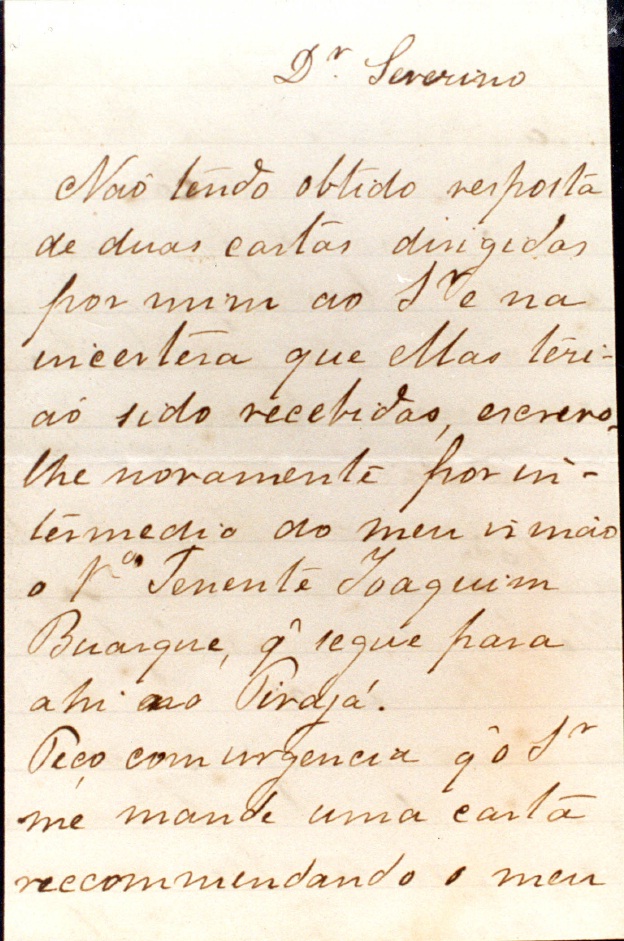 Dr Severino
Naõ tendo obtido resposta
de duas cartas dirigidas
por mim ao Sr e na
incerteza que ellas teri-
aõ sido recebidas, escrevo,
lhe novamente por in-
termedio do meu irmão
o 1o Tenente Joaquim
Buarque, q̂ segue para
ahi no Pirajá.
Peço com urgencia q̂ o Sr
me mande uma carta
reccommendando o meu